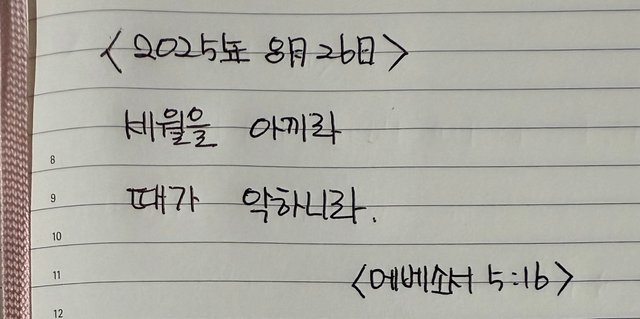 <2025年 8月 26日>
세월을 아끼라
8
때가 악하니라.
9
10
<에베소서 5:16>
11
12